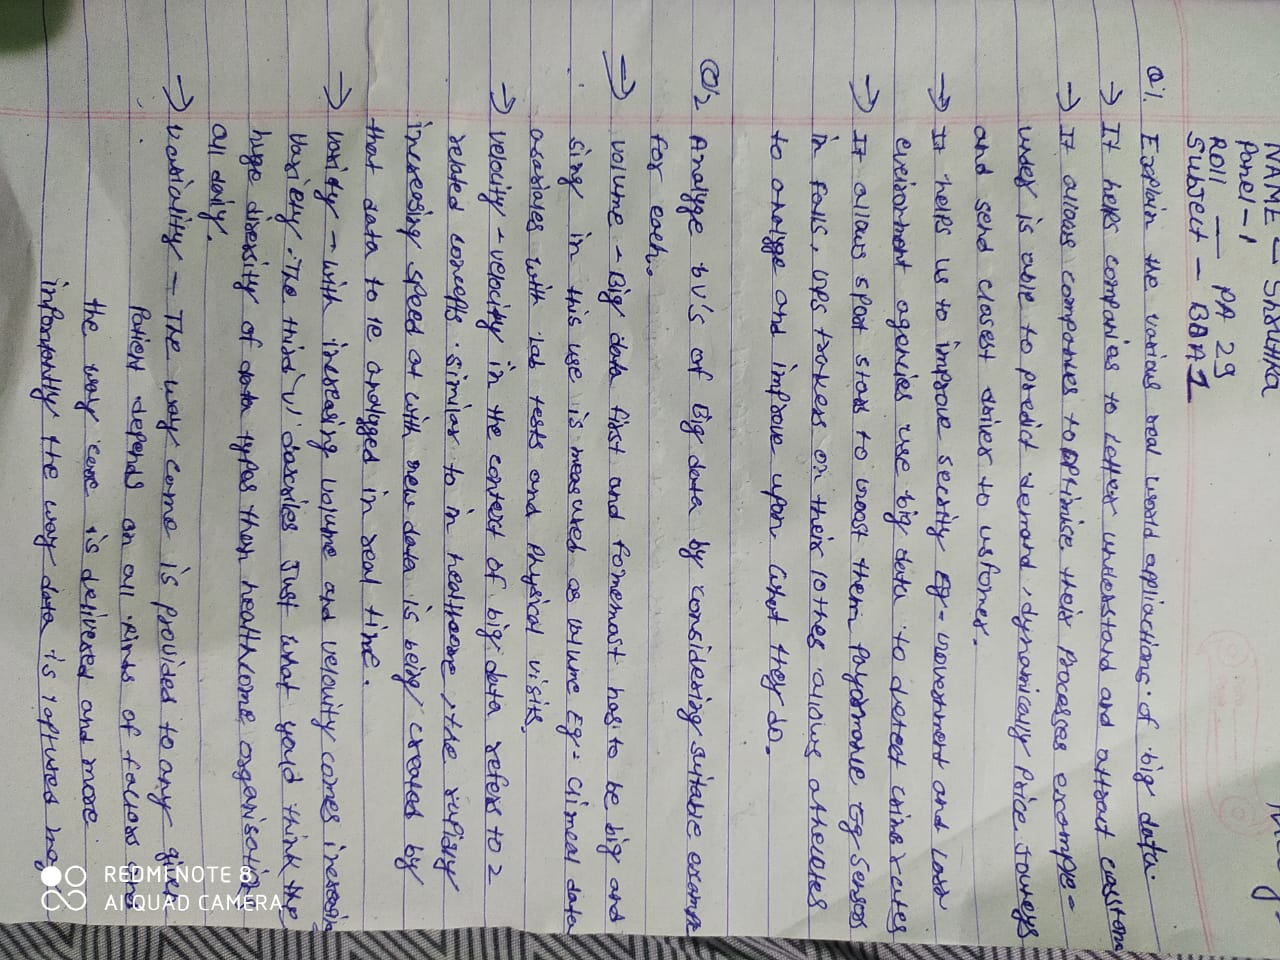 NAME - Shruthka
Panel - 1
Roll - PA 29
Subject - BDA1
Q1. Explain the various real world appliactions of big data.
→ It helps companies to better understand and attract
→ It allows companies to optimise their Processes example -
uber is able to predict demand, dynamically Price Joureys
and send closest driver to usfomer.
→ It helps us to improve secrity Eg - Government and Law
eveirorment agencies use big data to detect crime rates
→ It allows sport stars to boost them Eg Sensors
in falls, GPS trakers on their lothes allows athecetes
to analyze and improve upon what they do.
Q2 Analyze 6V's of Big data by considering suitable example
for each.
→ volume - Big data first and fomemost has to be big and
sing in this use is measured as volume Eg = Climcal data
with Lab tests and Physical visits.
→ velocity - velocity in the context of big data refers to 2
related concepts similar to in healthcare, the rapidly
increasing speed at with new data is being created by
that data to be analyzed in real time.
→ varidty - with increasing volume and velouity comes increasing
variety. The third 'v' describes Just what you'd think the
huge diversity of data types then healthcome organisation
all daily.
→ variality - The way came is provided to any given
Patient depends on all kinds of factors
the way care is delivered and more
impontantly the way data is captured may
REDMI NOTE 8
AI QUAD CAMERA